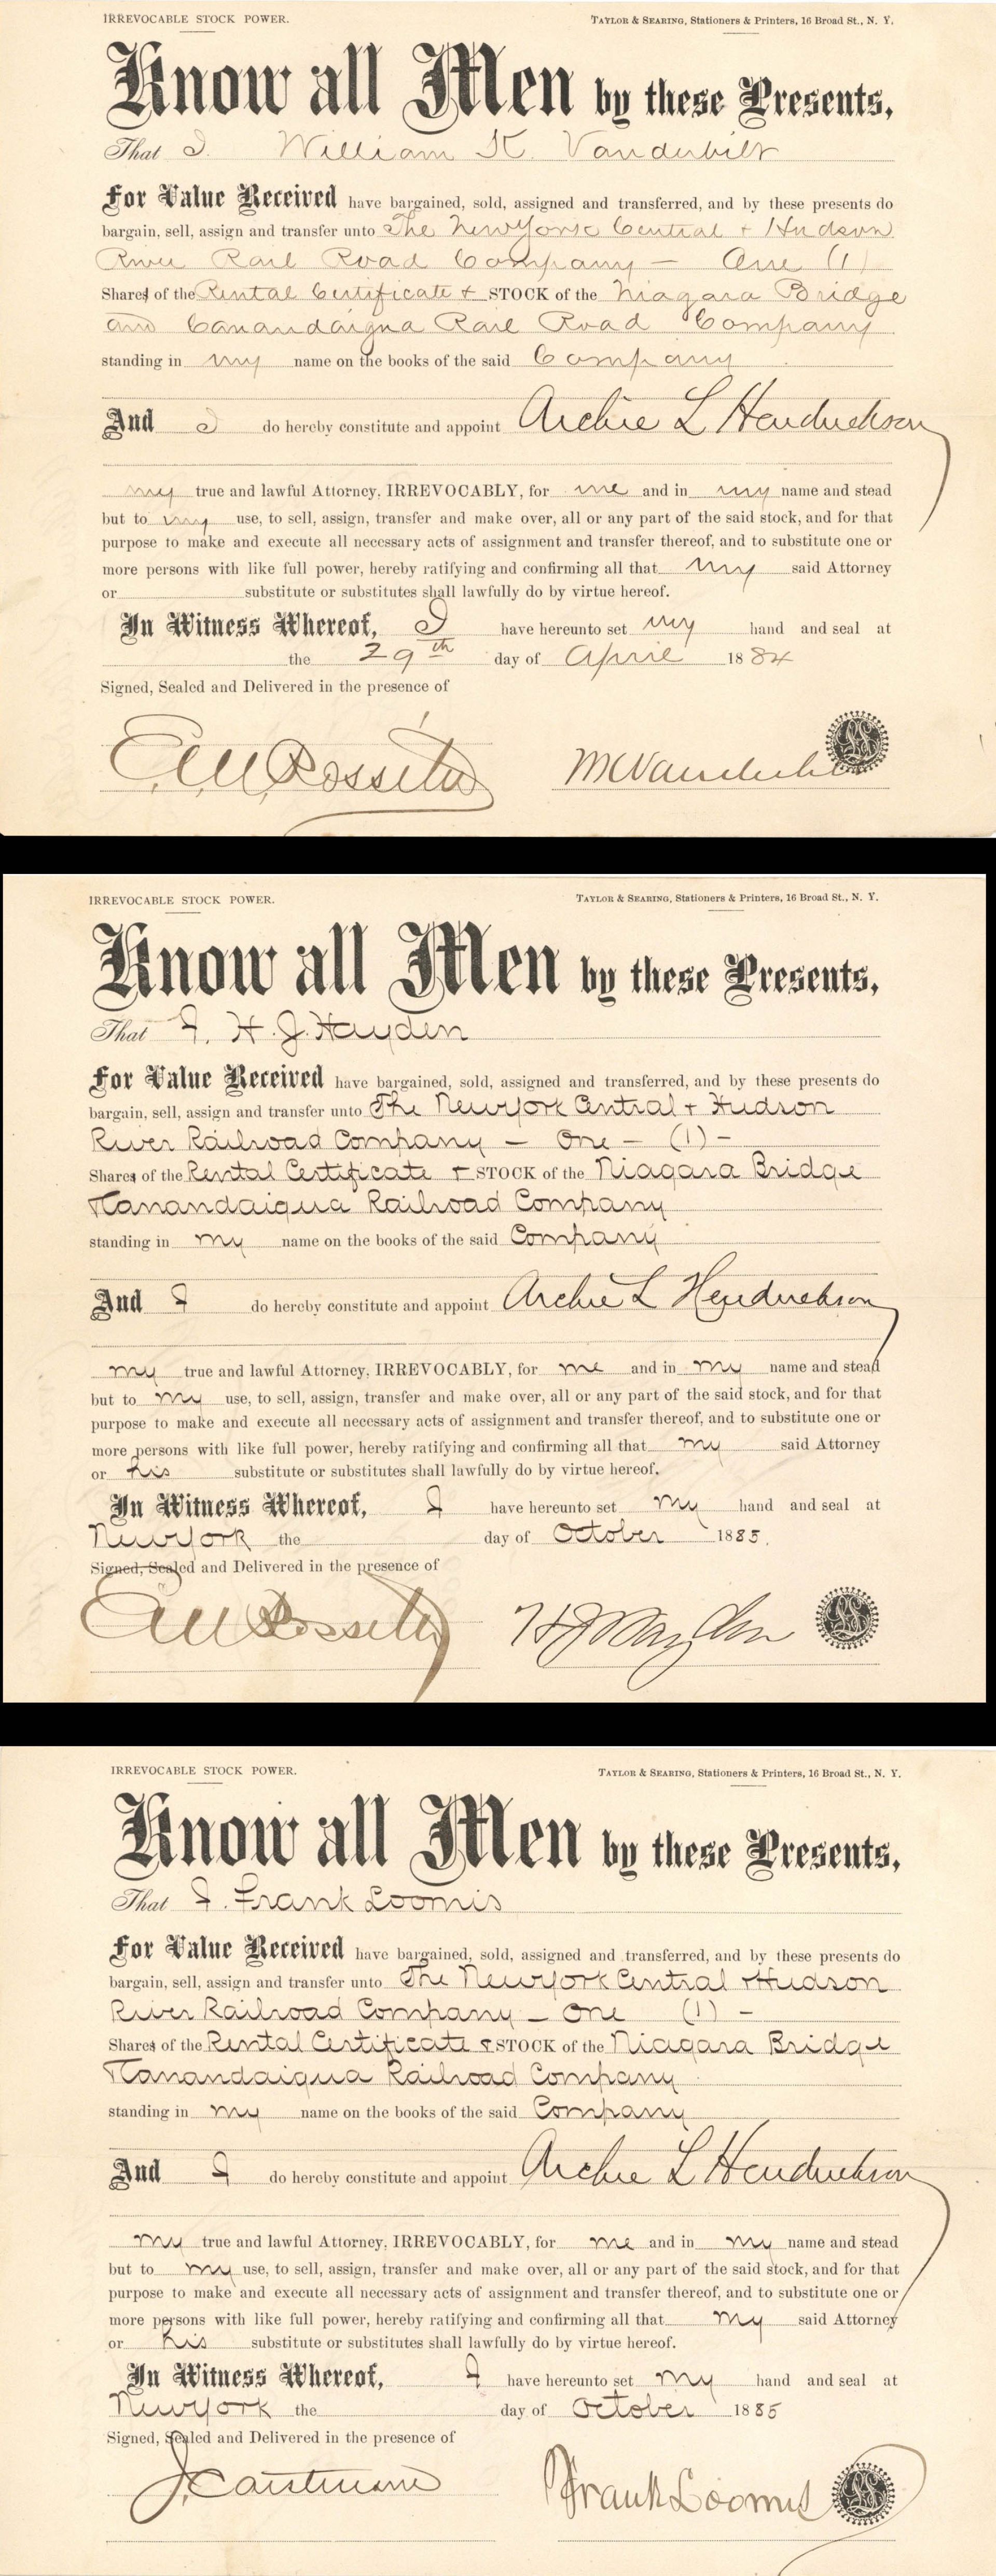 IRREVOCABLE STOCK POWER. TAYLOR & SEARING, Stationers & Printers, 16 Broad St., N. Y.
Know all Men by these Presents,
That I. William K. Vanderbilt
For Value Received have bargained, sold, assigned and transferred, and by these presents do
bargain, sell, assign and transfer unto The New York Central + Hudson
River Rail Road Company — One (1)
Shares of the Rental Certificate + STOCK of the Niagara Bridge
and Canandaigua Rail Road Company
standing in my name on the books of the said Company
And I do hereby constitute and appoint Archie L Hendrickson
my true and lawful Attorney, IRREVOCABLY, for me and in my name and stead
but to my use, to sell, assign, transfer and make over, all or any part of the said stock, and for that
purpose to make and execute all necessary acts of assignment and transfer thereof, and to substitute one or
more persons with like full power, hereby ratifying and confirming all that my said Attorney
or substitute or substitutes shall lawfully do by virtue hereof.
In Witness Whereof, I have hereunto set my hand and seal at
the 29th day of April 1884
Signed, Sealed and Delivered in the presence of
Rossiter Vanderbilt
IRREVOCABLE STOCK POWER. TAYLOR & SEARING, Stationers & Printers, 16 Broad St., N. Y.
Know all Men by these Presents,
That I, H. J. Hayden
For Value Received have bargained, sold, assigned and transferred, and by these presents do
bargain, sell, assign and transfer unto The New York Central + Hudson
River Railroad Company — One — (1) —
Shares of the Rental Certificate + STOCK of the Niagara Bridge
+ Canandaigua Railroad Company
standing in my name on the books of the said Company
And I do hereby constitute and appoint Archie L Hendrickson
my true and lawful Attorney, IRREVOCABLY, for me and in my name and stead
but to my use, to sell, assign, transfer and make over, all or any part of the said stock, and for that
purpose to make and execute all necessary acts of assignment and transfer thereof, and to substitute one or
more persons with like full power, hereby ratifying and confirming all that my said Attorney
or his substitute or substitutes shall lawfully do by virtue hereof.
In Witness Whereof, I have hereunto set my hand and seal at
New York the day of October 1885.
Signed, Sealed and Delivered in the presence of
Rossiter H J Hayden
IRREVOCABLE STOCK POWER. TAYLOR & SEARING, Stationers & Printers, 16 Broad St., N. Y.
Know all Men by these Presents,
That I. Frank Loomis
For Value Received have bargained, sold, assigned and transferred, and by these presents do
bargain, sell, assign and transfer unto The New York Central + Hudson
River Railroad Company — One (1) —
Shares of the Rental Certificate + STOCK of the Niagara Bridge
+ Canandaigua Railroad Company
standing in my name on the books of the said Company
And I do hereby constitute and appoint Archie L Hendrickson
my true and lawful Attorney, IRREVOCABLY, for me and in my name and stead
but to my use, to sell, assign, transfer and make over, all or any part of the said stock, and for that
purpose to make and execute all necessary acts of assignment and transfer thereof, and to substitute one or
more persons with like full power, hereby ratifying and confirming all that my said Attorney
or his substitute or substitutes shall lawfully do by virtue hereof.
In Witness Whereof, I have hereunto set my hand and seal at
New York the day of October 1885
Signed, Sealed and Delivered in the presence of
Frank Loomis